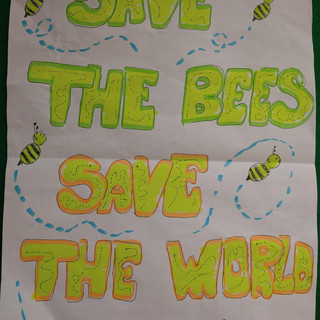 SAVE
THE BEES
SAVE
THE WORLD